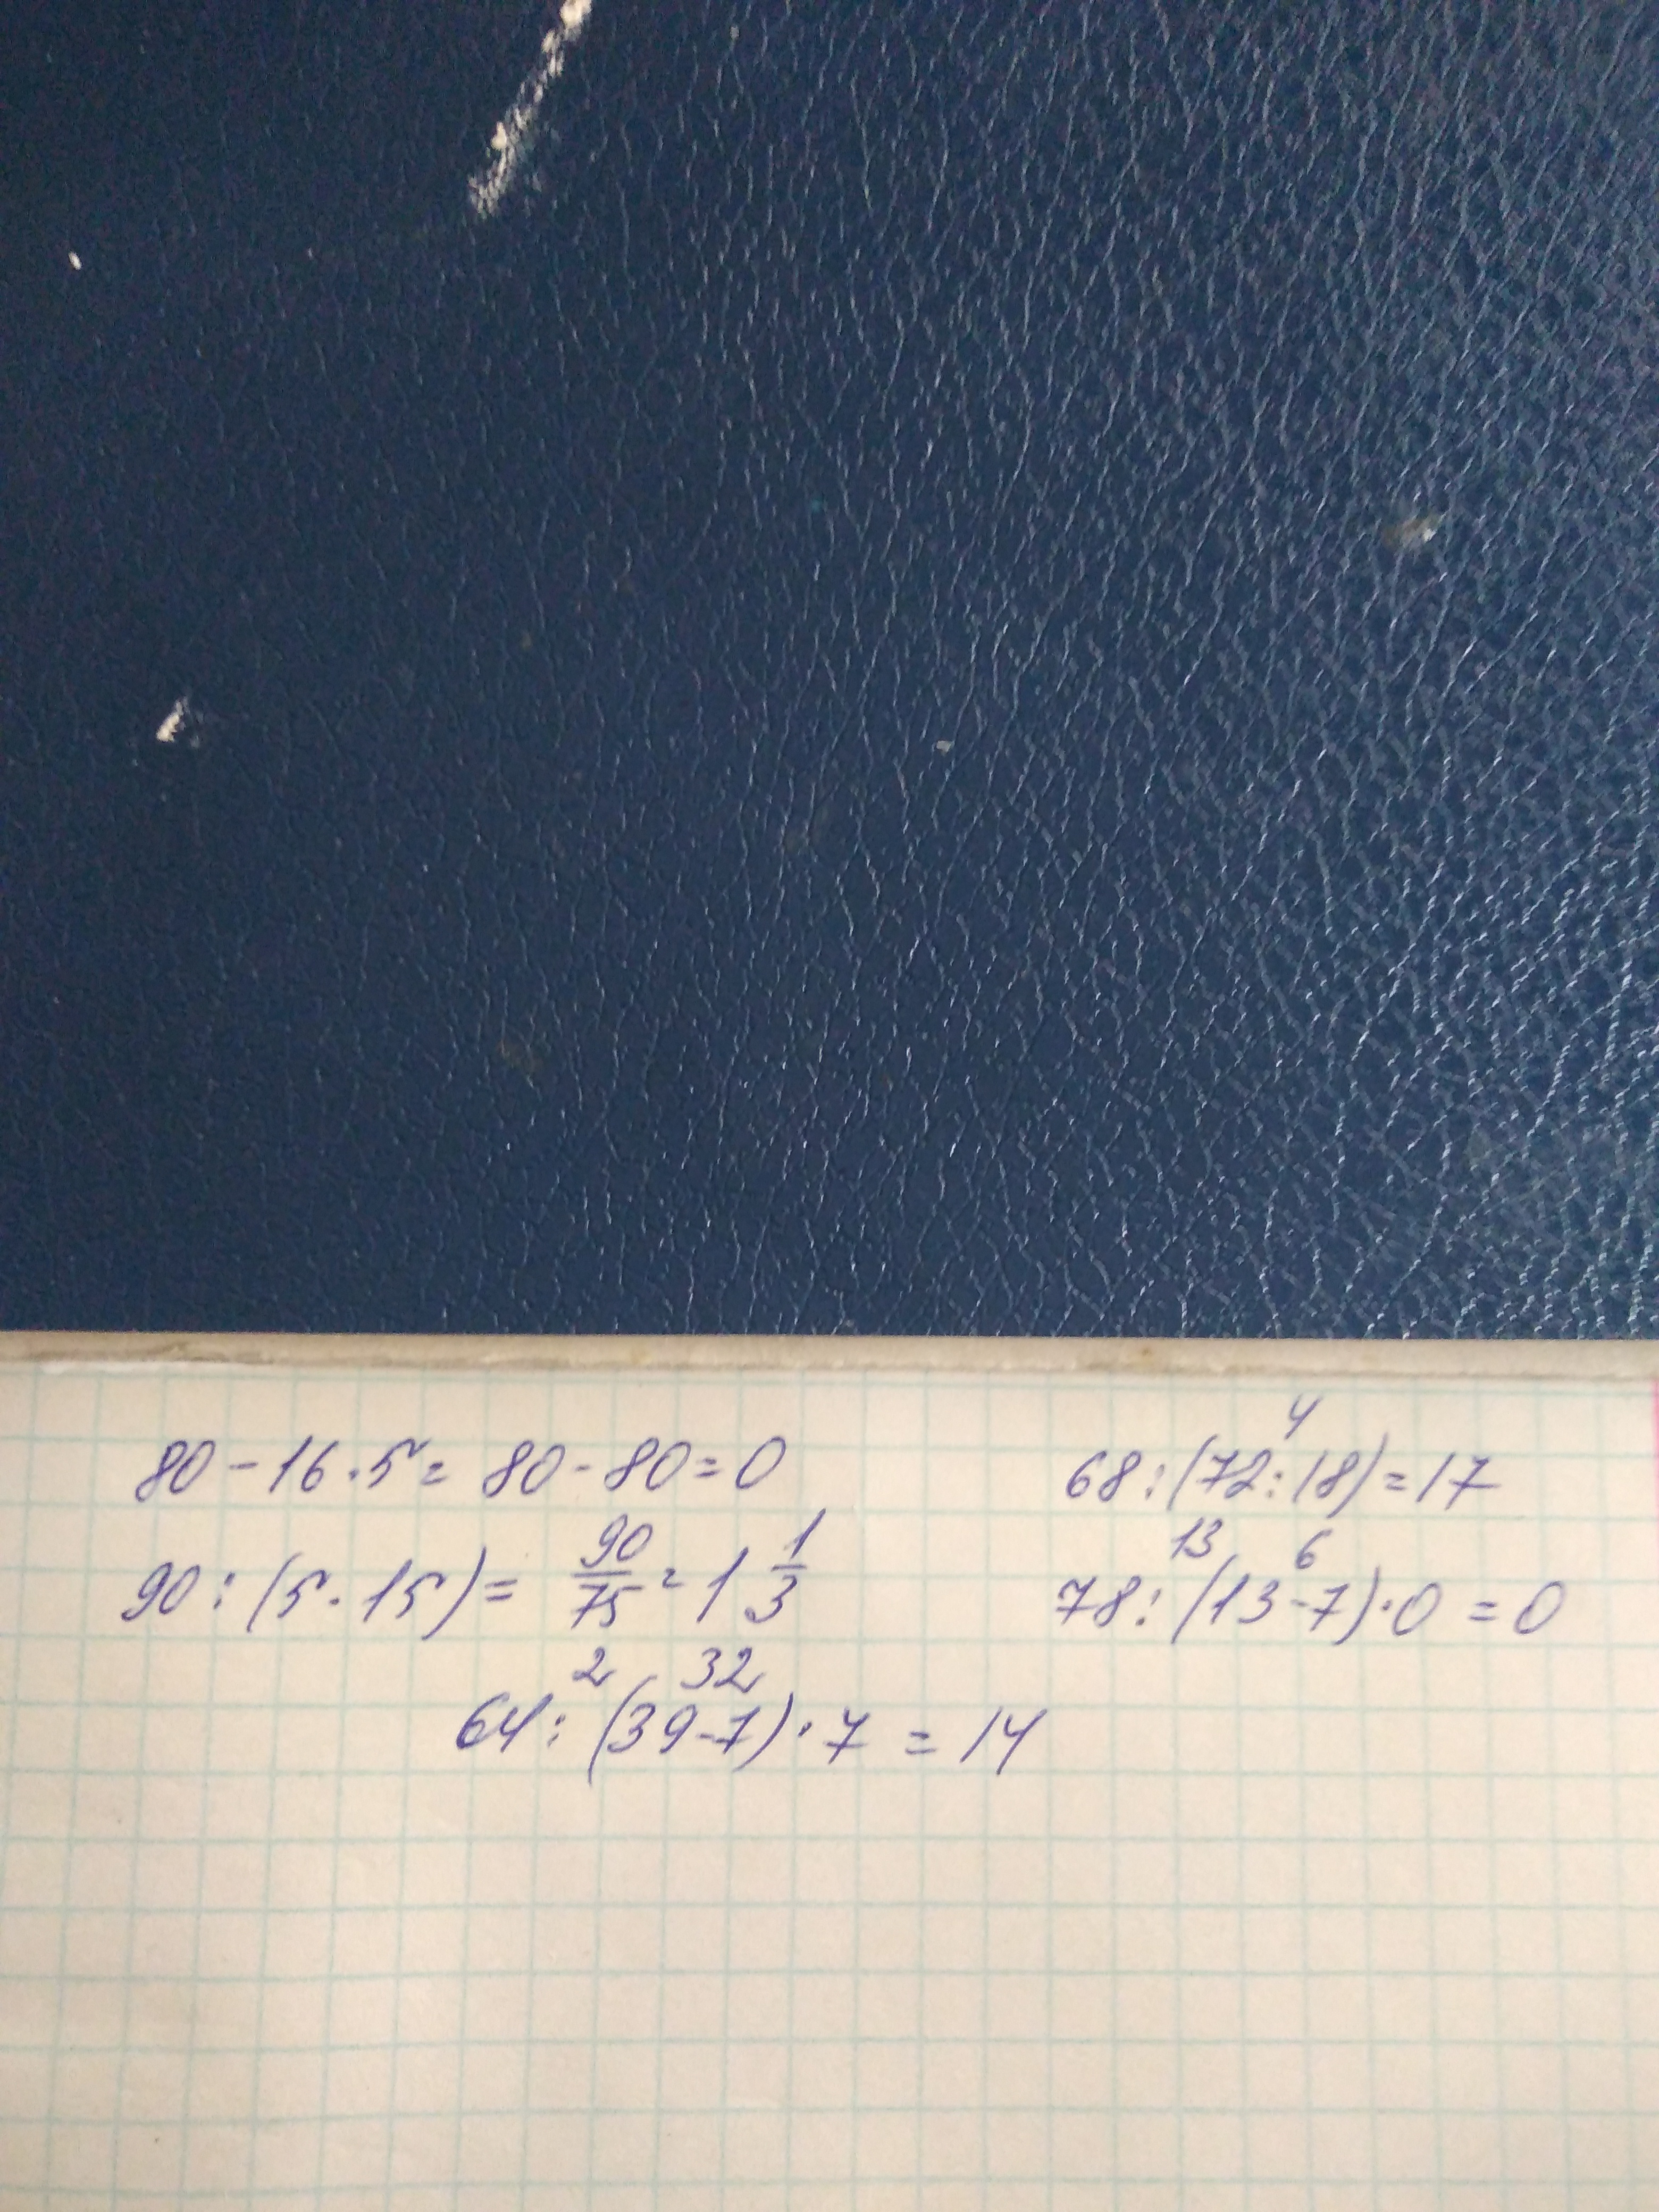 80-16·5= 80-80=0
4
68:(72:18)=17
90:(5·15)= 90/75=1 1/3
13 6
78:(13-7)·0=0
2 32
64:(39-7)·7=14